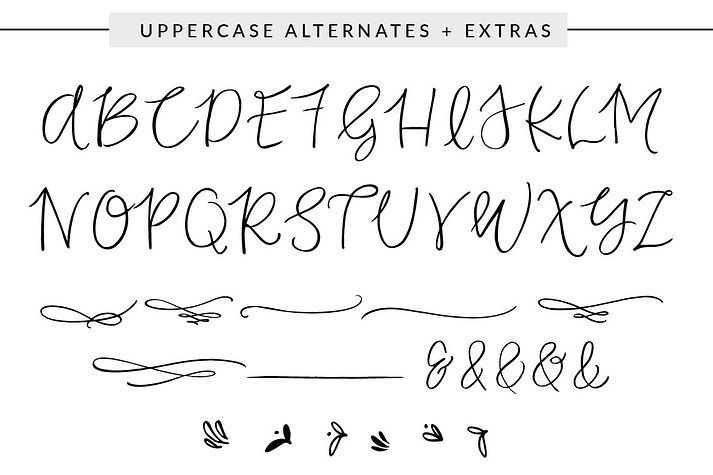 UPPERCASE ALTERNATES + EXTRAS
A B C D E F G H I J K L M
N O P Q R S T U V W X Y Z
& & & & &